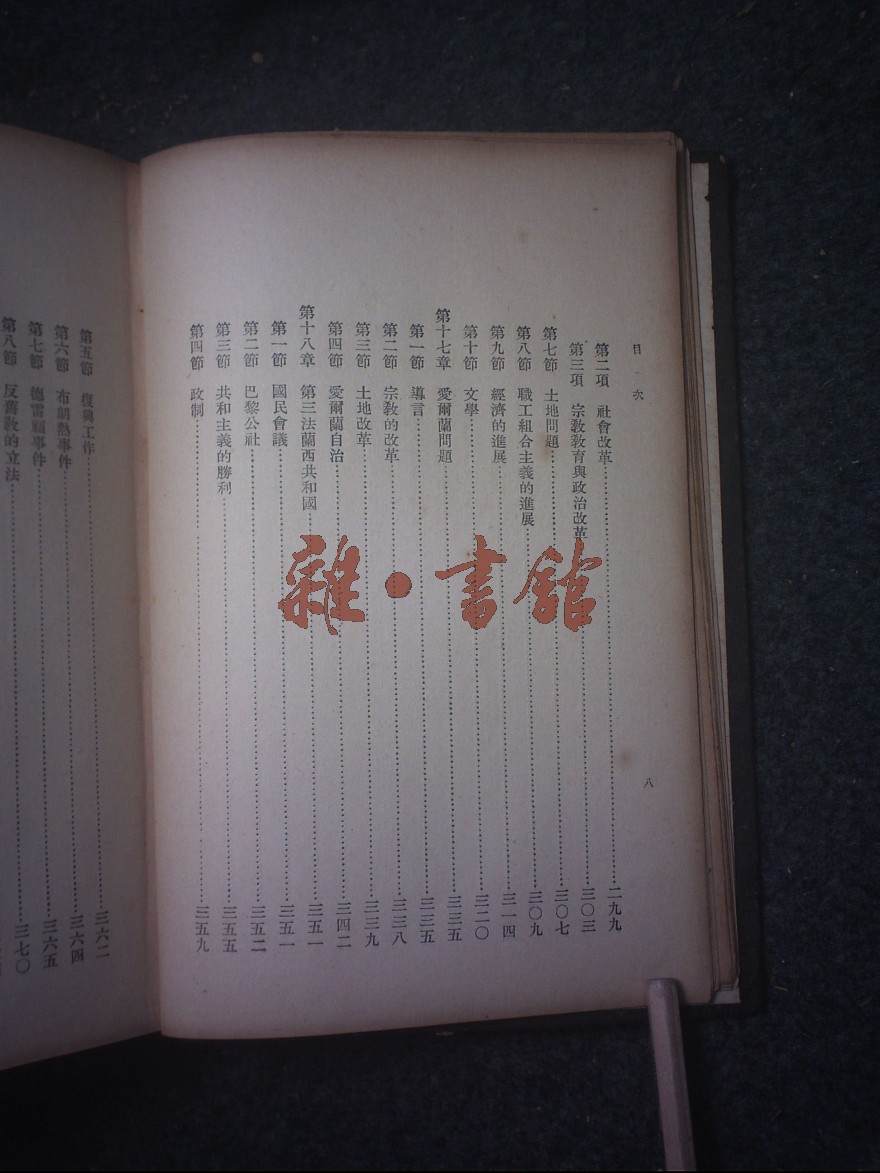 目次
第二項　社會改革……二九九
第三項　宗敎敎育與政治改革……三〇三
第七節　土地問題……三〇七
第八節　職工組合主義的進展……三〇九
第九節　經濟的進展……三一四
第十節　文學……三二〇
第十七章　愛爾蘭問題……三三五
第一節　導言……三三五
第二節　宗敎的改革……三三八
第三節　土地改革……三三九
第四節　愛爾蘭自治……三四二
第十八章　第三法蘭西共和國……三五一
第一節　國民會議……三五一
第二節　巴黎公社……三五二
第三節　共和主義的勝利……三五五
第四節　政制……三五九
八
第五節　復興工作……三六二
第六節　布朗熱事件……三六四
第七節　德雷顧事件……三六五
第八節　反舊敎的立法……三七〇
雜·書館